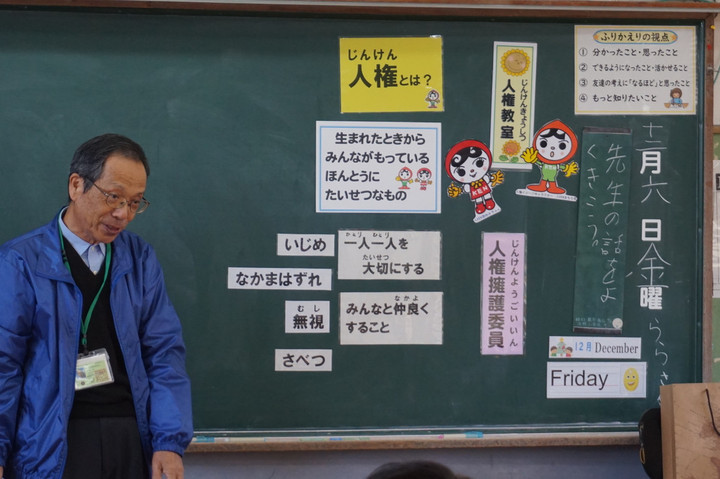 じんけん
人権とは？
生まれたときから
みんながもっている
ほんとうに
たいせつなもの
いじめ
なかまはずれ
むし
無視
さべつ
ひとり ひとり
一人一人を
たいせつ
大切にする
なかよ
みんなと仲良く
すること
じんけんきょうしつ
人権教室
じんけんようごいいん
人権擁護委員
ふりかえりの視点
① 分かったこと・思ったこと
② できるようになったこと・活かせること
③ 友達の考えに「なるほど」と思ったこと
④ もっと知りたいこと
十二月六日金曜
先生の話をよ
くきこう。
12月 December
Friday